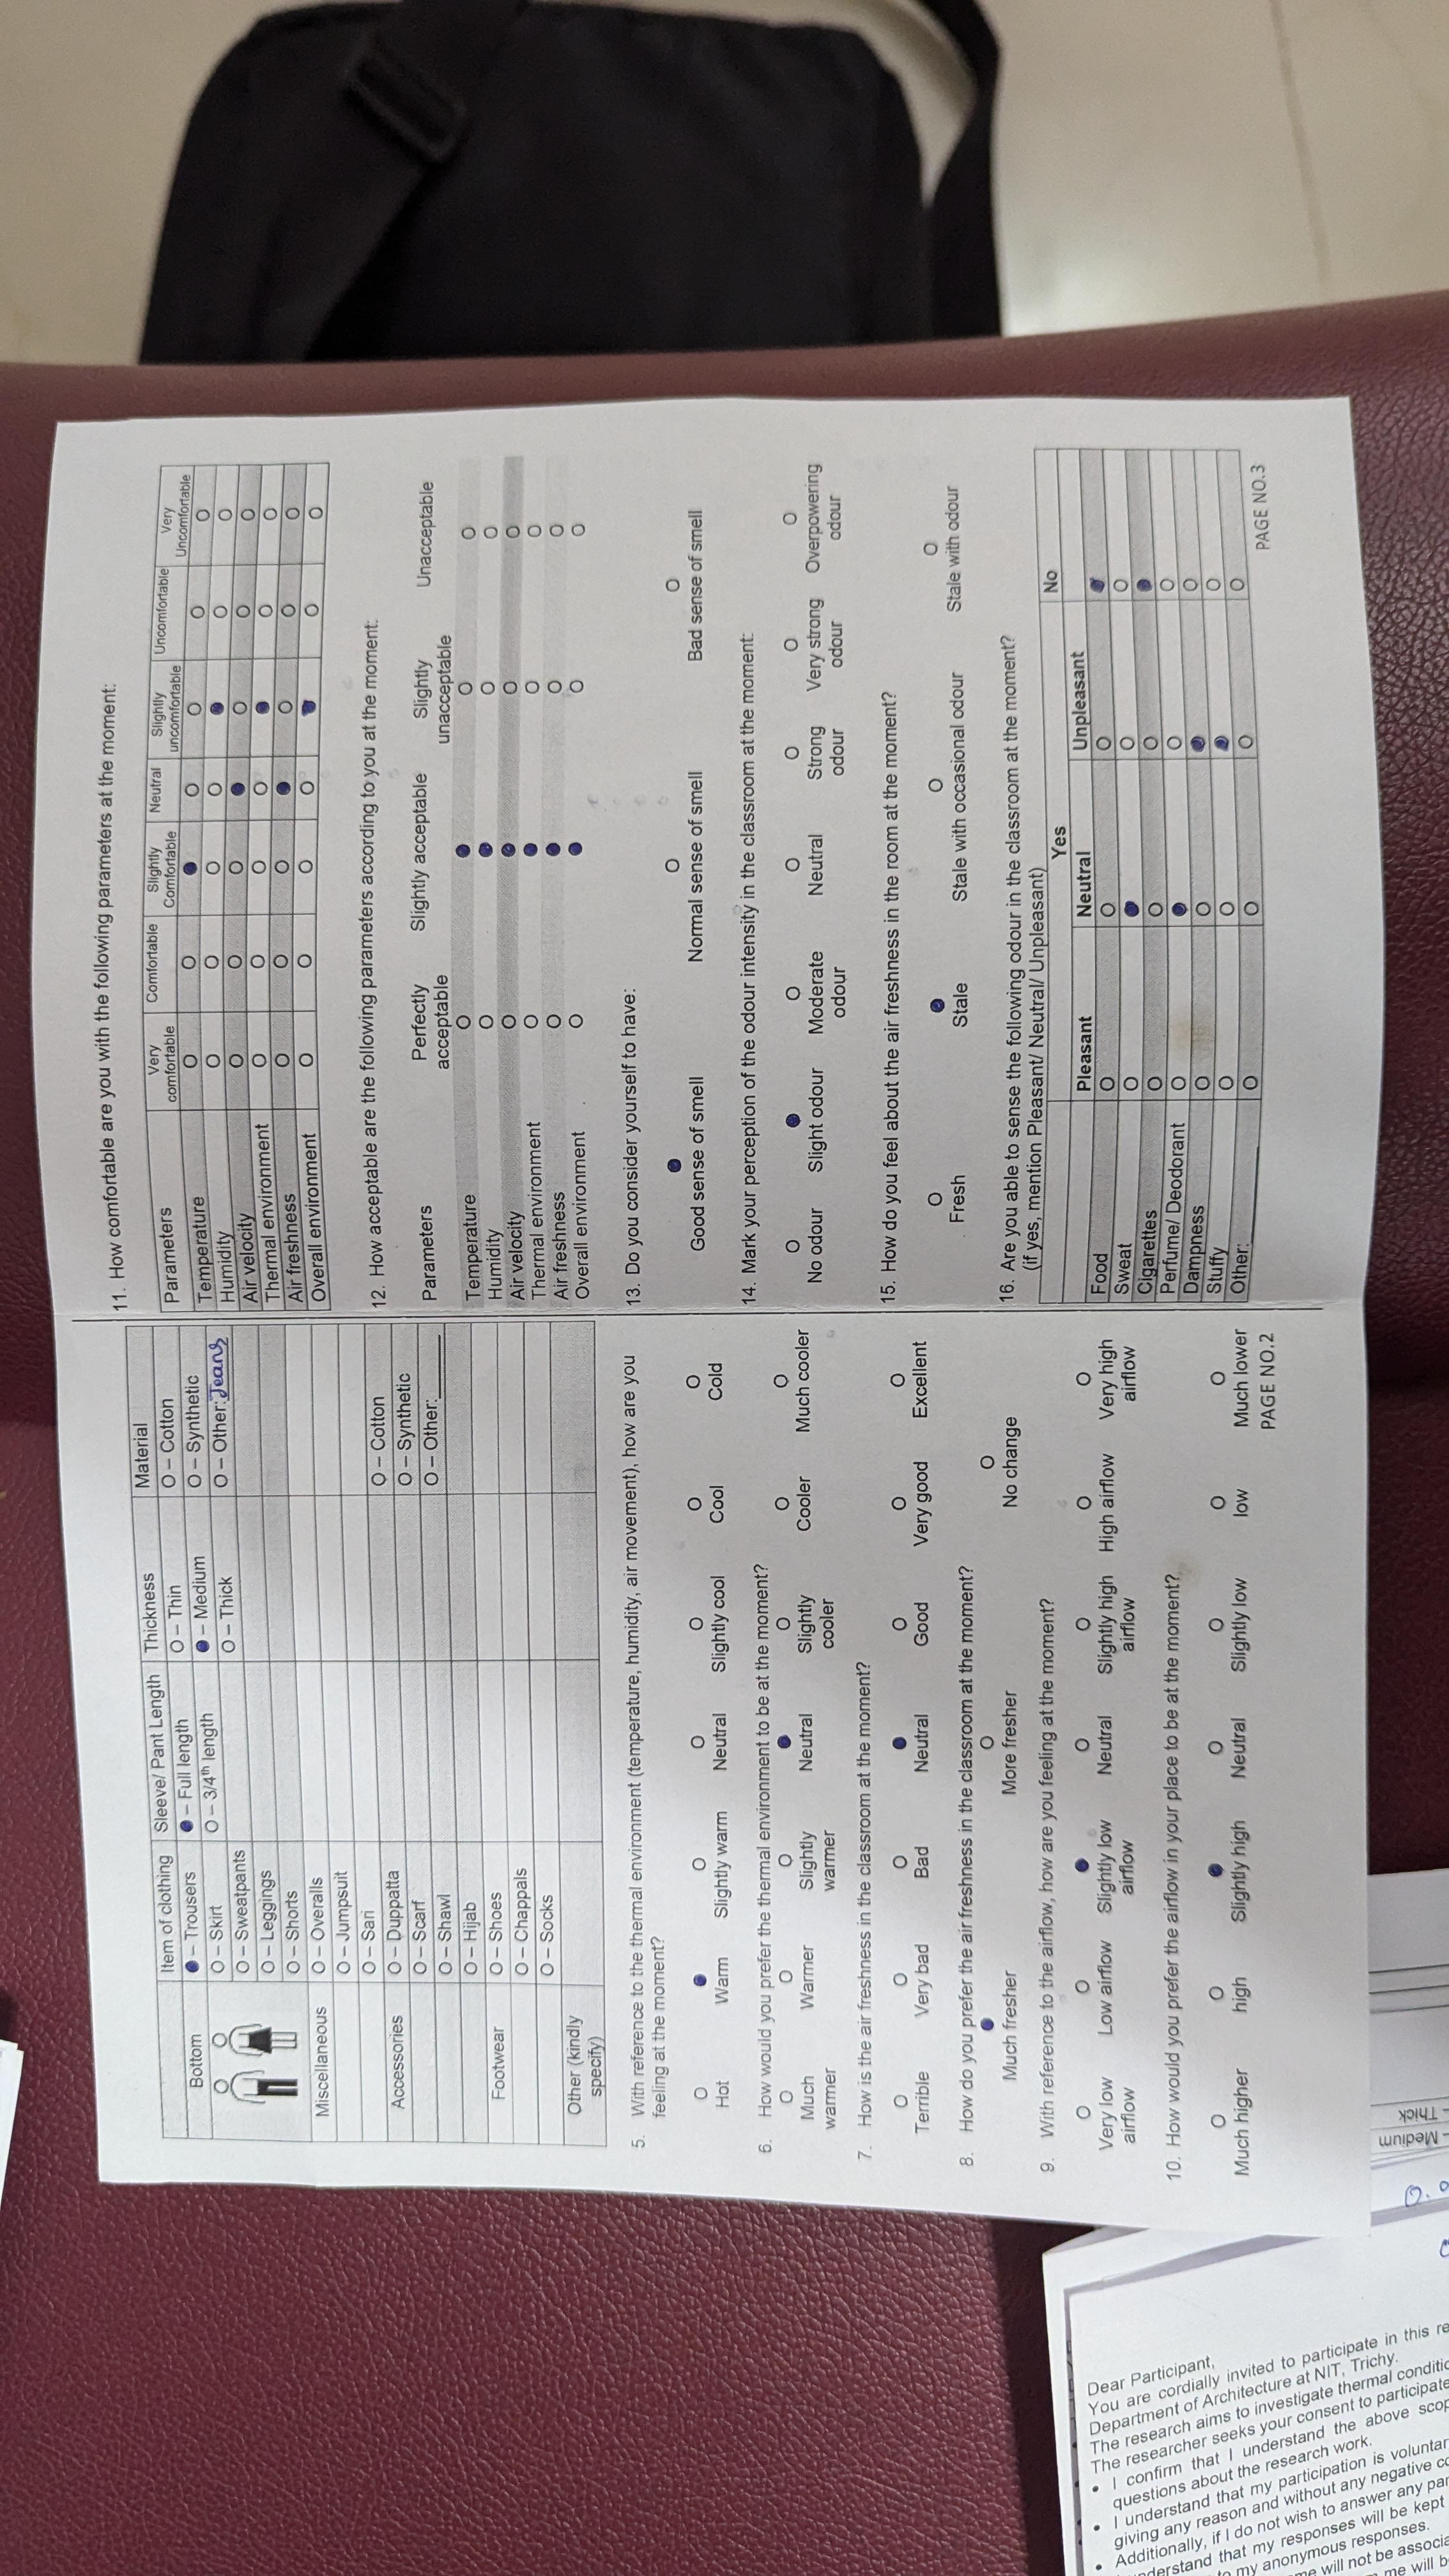 Item of clothing Sleeve/ Pant Length Thickness Material
Bottom
● – Trousers ● – Full length O – Thin O – Cotton
O – Skirt O – 3/4th length ● – Medium O – Synthetic
O – Sweatpants O – Thick O – Other: Jeans
O – Leggings
O – Shorts
Miscellaneous O – Overalls
O – Jumpsuit
O – Sari
Accessories O – Duppatta O – Cotton
O – Scarf O – Synthetic
O – Shawl O – Other:
O – Hijab
Footwear O – Shoes
O – Chappals
O – Socks
Other (kindly
specify)
5. With reference to the thermal environment (temperature, humidity, air movement), how are you
feeling at the moment?
O O ● O O O O O
Hot Warm Slightly warm Neutral Slightly cool Cool Cold
6. How would you prefer the thermal environment to be at the moment?
Much warmer Warmer Slightly warmer Neutral Slightly cooler Cooler Much cooler
7. How is the air freshness in the classroom at the moment?
Terrible Very bad Bad Neutral Good Very good Excellent
8. How do you prefer the air freshness in the classroom at the moment?
Much fresher More fresher No change
9. With reference to the airflow, how are you feeling at the moment?
Very low airflow Low airflow Slightly low airflow Neutral Slightly high airflow High airflow Very high airflow
10. How would you prefer the airflow in your place to be at the moment?
Much higher high Slightly high Neutral Slightly low low Much lower
PAGE NO.2
11. How comfortable are you with the following parameters at the moment:
Parameters Very comfortable Comfortable Slightly Comfortable Neutral Slightly uncomfortable Uncomfortable Very Uncomfortable
Temperature O O ● O O O O
Humidity O O O O ● O O
Air velocity O O O ● O O O
Thermal environment O O O O ● O O
Air freshness O O O ● O O O
Overall environment O O O O ● O O
12. How acceptable are the following parameters according to you at the moment:
Parameters Perfectly acceptable Slightly acceptable Slightly unacceptable Unacceptable
Temperature O ● O O
Humidity O ● O O
Air velocity O ● O O
Thermal environment O ● O O
Air freshness O ● O O
Overall environment O ● O O
13. Do you consider yourself to have:
● O O
Good sense of smell Normal sense of smell Bad sense of smell
14. Mark your perception of the odour intensity in the classroom at the moment:
O ● O O O O O
No odour Slight odour Moderate odour Neutral Strong odour Very strong odour Overpowering odour
15. How do you feel about the air freshness in the room at the moment?
O ● O O
Fresh Stale Stale with occasional odour Stale with odour
16. Are you able to sense the following odour in the classroom at the moment?
(If yes, mention Pleasant/ Neutral/ Unpleasant)
Yes No
Pleasant Neutral Unpleasant
Food O O O ●
Sweat O ● O O
Cigarettes O O O ●
Perfume/ Deodorant O ● O O
Dampness O O ● O
Stuffy O O ● O
Other: O O O O
PAGE NO.3
Dear Participant,
You are cordially invited to participate in this re
Department of Architecture at NIT, Trichy.
The research aims to investigate thermal conditio
The researcher seeks your consent to participate
• I confirm that I understand the above scop
questions about the research work.
• I understand that my participation is voluntar
giving any reason and without any negative co
• Additionally, if I do not wish to answer any par
understand that my responses will be kept
to my anonymous responses.
me will not be associa
me will b
– Medium
– Thick